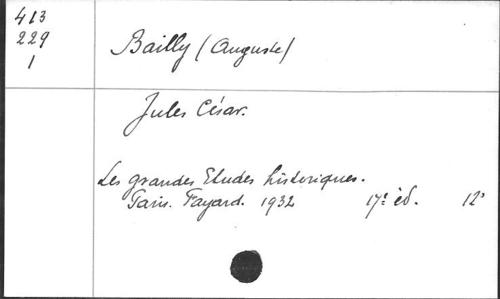 413
229
1
Bailly (Auguste)
Jules César.
Les grandes Etudes historiques.
Paris. Fayard. 1932 17e éd. 12°